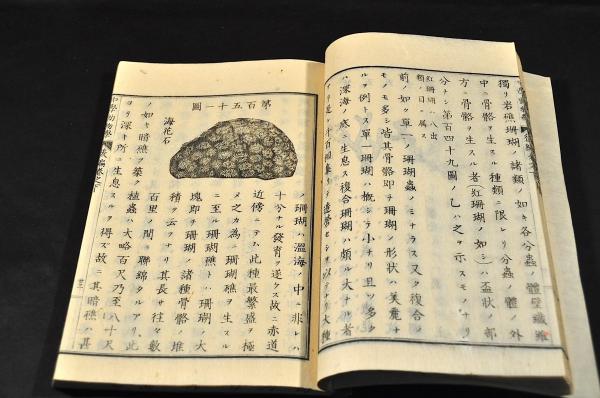 獨リ岩礁珊瑚ノ諸類ノ如キ各分蟲ノ體壁纎維
中ニ骨骼ヲ生スル種類ニ限レリ分蟲ノ體ノ外
方ニ骨骼ヲ生スル者紅珊瑚ノ如シハ盃狀ノ部
分ナシ第百四十九圖ノ乙ハ之ヲ示スモノナリ
紅珊瑚ハ八出
類ノ目ニ屬ス
前ノ如キ單一ノ珊瑚蟲ノミナラス又タ複合ノ
モノモ多シ皆其骨骼即チ珊瑚ノ形狀ハ美麗ナ
ルヲ例トス單一珊瑚ハ概シテ小ナリ且ツ多ク
ハ深海ノ底ニ生息ス複合珊瑚ハ頗ル大ナル者
第百五十一圖
海花石
ノ珊瑚ハ溫海ノ中ニ非レハ
十分ナル發育ヲ遂ケス故ニ赤道
近傍ニテハ此種最繁盛ヲ極
メ之カ為ニ珊瑚礁ヲ生スル
ニ至ル珊瑚礁トハ珊瑚ノ大
塊即チ珊瑚ノ諸種骨骼ノ堆
積ヲ云フナリ其長サ往々數
百里ノ間ニ聯綿タルアリ此
ノ如キ暗礁ヲ築ク植蟲ハ大略百尺乃至八十尺
ヨリ深キ所ニ生息スルヲ得ス故ニ其暗礁ハ甚